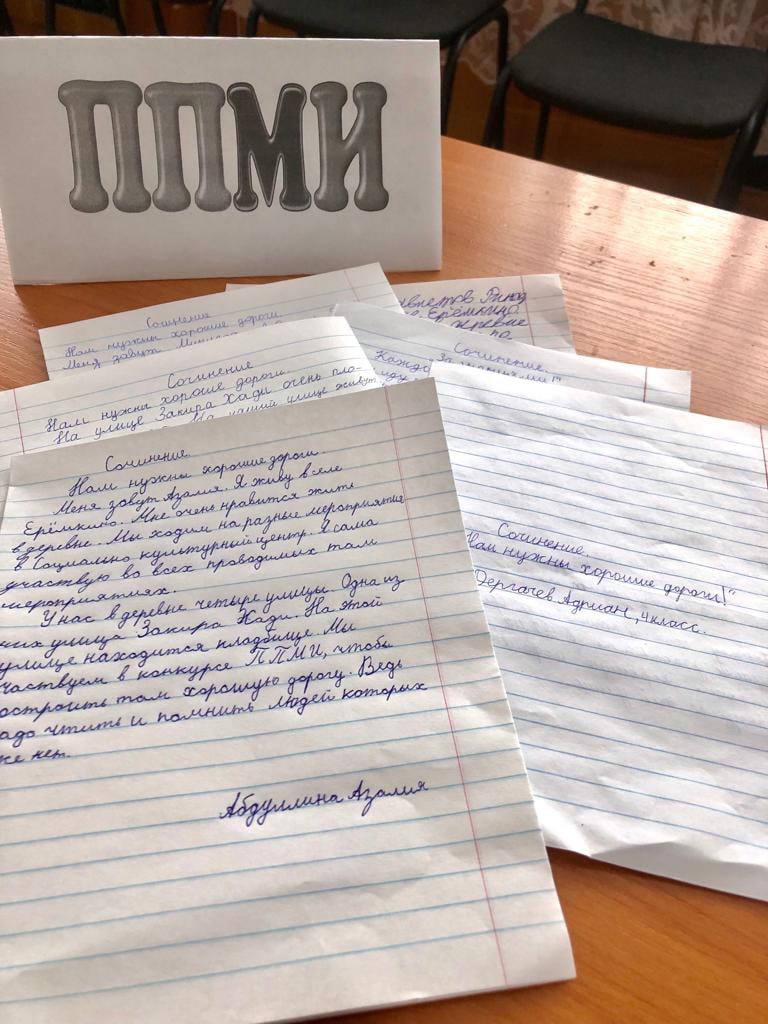 ППМИ
Сочинение
Нам нужны хорошие дороги
Меня зовут
Ерёмкино
деревне
по
Сочинение.
Сочинение
Нам нужны хорошие дороги.
На улице Закира Хади очень пло-
На нашей улице живут
Сочинение.
Нам нужны хорошие дороги.
Меня зовут Азалия. Я живу в селе
Ерёмкино. Мне очень нравится жить
в деревне. Мы ходим на разные мероприятие
в Социально культурный центр. Я сама
участвую во всех проводимых там
мероприятиях.
У нас в деревне четыре улицы. Одна из
них улица Закира Хади. На этой
улице находится кладбище. Мы
частвуем в конкурсе ППМИ, чтобы
остроить там хорошую дорогу. Ведь
адо чтить и помнить людей которых
же нет.
Абдуллина Азалия
Сочинение.
Нам нужны хорошие дороги!"
Дергачев Адриан, 4 класс.